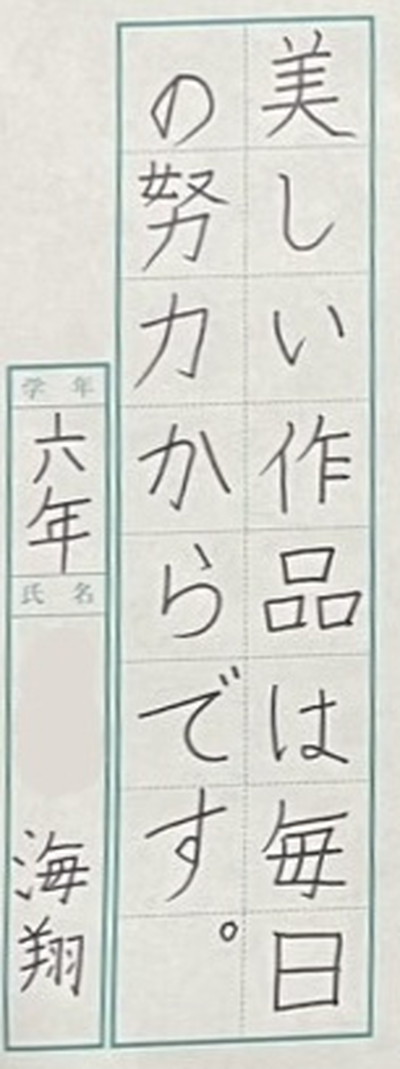 美しい作品は毎日
の努力からです。
学年
六年
氏名
海翔